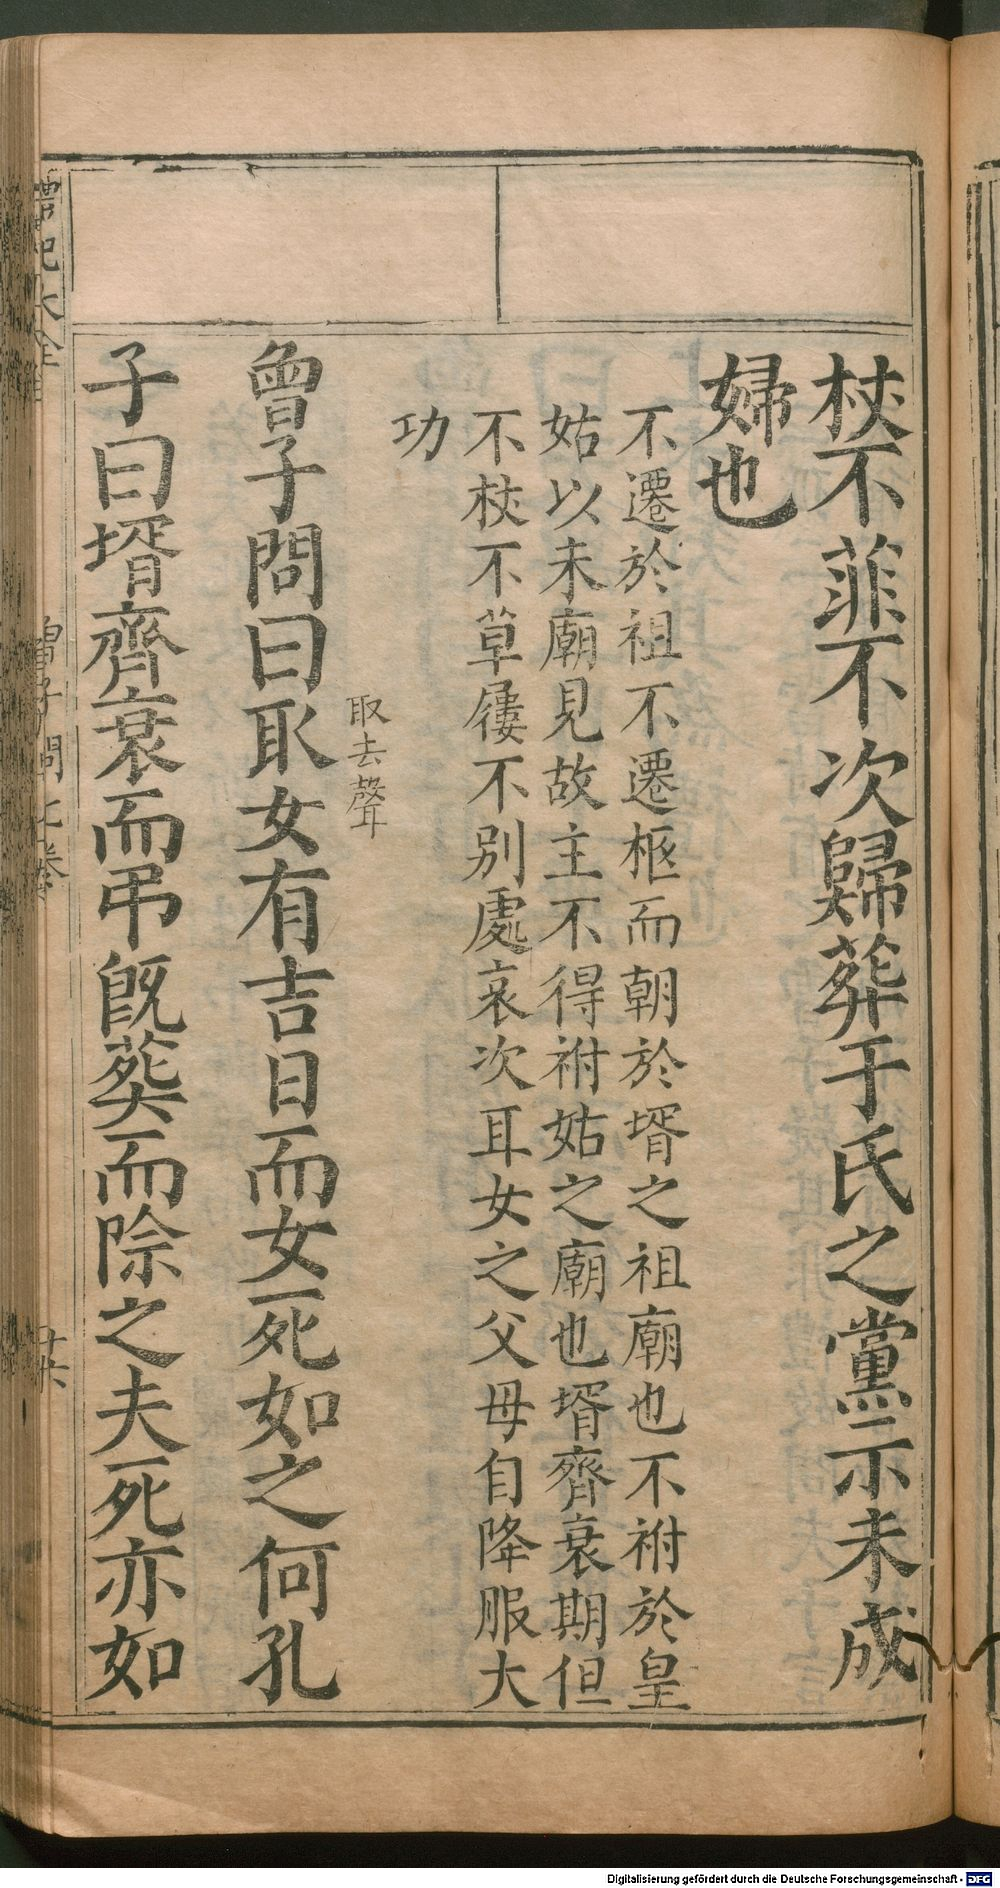 杖不菲不次歸葬于氏之黨示未成
婦也
不遷於祖不遷柩而朝於壻之祖廟也不祔於皇
姑以未廟見故主不得祔姑之廟也壻齊衰期但
不杖不草屨不別處哀次耳女之父母自降服大
功
取去聲
曾子問曰取女有吉日而女死如之何孔
子曰壻齊衰而弔旣葬而除之夫死亦如
Digitalisierung gefördert durch die Deutsche Forschungsgemeinschaft - DFG